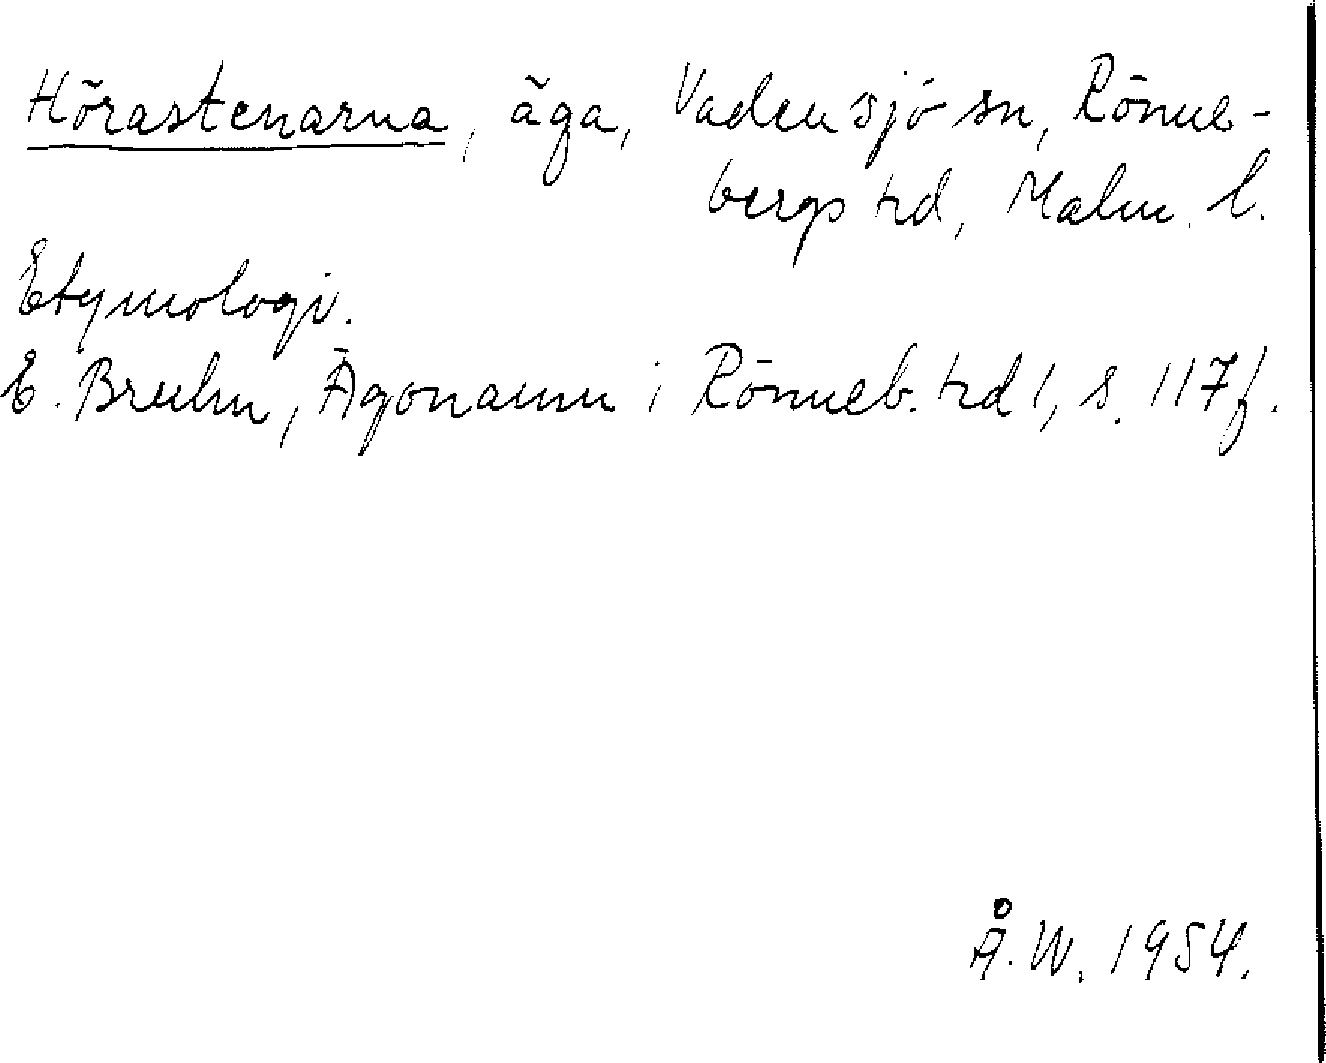 Hörastenarna, äga, Vadensjö sn, Rönne-
bergs hd, Malm. l.
Etymologi.
E. Bruhn, Ägonamn i Rönneb. hd 1, s. 117 f.
Å. W. 1954.